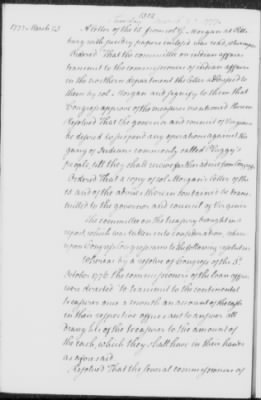 1777. March 23
A letter of the 15 from col G. Morgan at Pitts
burg with sundry papers enclosed was read, whereupon
Ordered That the committee on indian affairs
transmit to the commissioners of indian affairs
in the northern department the letter addressed to
them by col. Morgan and signify to them that
Congress approve of the measures mentioned therein
Resolved That the governor and council of Virginia
be desired to suspend any operations against the
gang of Indians commonly called Pluggy's
people, till they shall receive further advice from Congress
Ordered That a copy of col. Morgan's letter of the
15 and of the advice therein contained be trans
mitted to the governor and council of Virginia
The committee on the treasury brought in a
report, which was taken into consideration where
upon Congress came to the following resolution
Whereas by a resolve of Congress of the 3d
October 1776 the commissioners of the loan offices
were directed to transmit to the continental
treasurer once a month an account of the cash
in their respective offices and to answer all
draughts of the treasurer to the amount of
the cash, which they shall have in their hands
as aforesaid.
Resolved That the several commissioners of